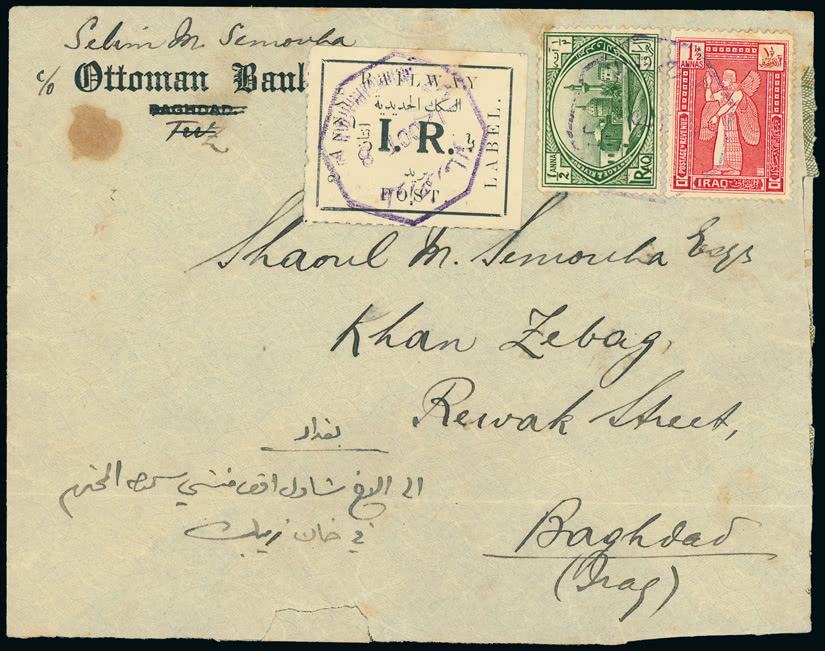 Selim M. Semouha
c/o Ottoman Bank
BAGHDAD.
RAILWAY
السكك الحديدية
I. R.
بريد
POST
LABEL.
1/2 ANNA
IRAQ
1 1/2 ANNAS
POSTAGE & REVENUE
IRAQ
Shaoul M. Semouha Esqr
Khan Zebag,
Rewak Street,
Baghdad
(Iraq)
بغداد
الى الاخ شاول افـ منشي سموحه المحترم
في خان زبيك